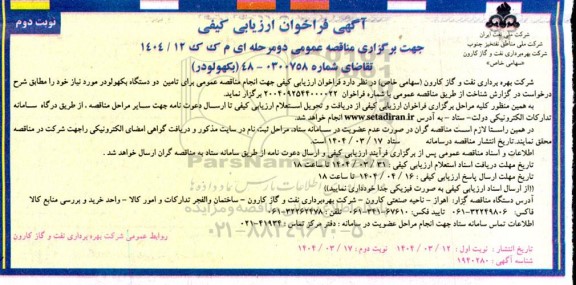 نوبت دوم
آگهی فراخوان ارزیابی کیفی
جهت برگزاری مناقصه عمومی دومرحله ای م ک ک ۱۲ / ۱۴۰۴
تقاضای شماره ۰۳۰۰۷۵۸ - ۴۸ (بکهولودر)
شرکت ملی نفت ایران
شرکت ملی مناطق نفتخیز جنوب
شرکت بهره‌برداری نفت و گاز کارون
«سهامی خاص»
شرکت بهره برداری نفت و گاز کارون (سهامی خاص) در نظر دارد فراخوان ارزیابی کیفی جهت انجام مناقصه عمومی برای تامین دو دستگاه بکهولودر مورد نیاز خود را مطابق شرح
درخواست در گزارش شناخت از طریق مناقصه عمومی با شماره فراخوان برگزار نماید.
به همین منظور کلیه مراحل برگزاری فراخوان ارزیابی کیفی از دریافت و تحویل استعلام ارزیابی کیفی تا ارسال دعوت نامه جهت سایر مراحل مناقصه ، از طریق درگاه سامانه
تدارکات الکترونیکی دولت- ستاد - به آدرس www.setadiran.ir انجام خواهد شد.
در همین راستا لازم است مناقصه گران در صورت عدم عضویت در سامانه ستاد، مراحل ثبت نام در سایت مذکور و دریافت گواهی امضای الکترونیکی را جهت شرکت در مناقصه
محقق نمایند.تاریخ انتشار مناقصه در سامانه ستاد ۱۷ / ۰۳ / ۱۴۰۴ است.
اطلاعات و اسناد مناقصه عمومی پس از برگزاری فرآیند ارزیابی کیفی و ارسال دعوت نامه از طریق سامانه ستاد به مناقصه گران ارسال خواهد شد .
تاریخ مهلت دریافت اسناد استعلام ارزیابی کیفی : ۳۱ / ۰۳ / ۱۴۰۴ تا ساعت ۱۸
تاریخ مهلت ارسال پاسخ ارزیابی کیفی : ۱۶ / ۰۴ / ۱۴۰۴ تا ساعت ۱۸
((از ارسال اسناد ارزیابی کیفی به صورت فیزیکی جدا خودداری نمایید))
آدرس دستگاه مناقصه گزار: اهواز - ناحیه صنعتی کارون – شرکت بهره برداری نفت و گاز کارون – ساختمان والفجر تدارکات و امور کالا – واحد خرید و بررسی منابع کالا
فاکس: ۳۲۲۴۹۸۰۶-۰۶۱ تایید فکس: ۳۴۱-۶۷۶۱۰-۰۶۱ تلفن: ۳۲۲۶۲۴۷۸-۰۶۱
اطلاعات تماس سامانه ستاد جهت انجام مراحل عضویت در سامانه : دفتر مرکز تماس: ۴۱۹۳۴-۰۲۱
روابط عمومی شرکت بهره برداری نفت و گاز کارون
تاریخ انتشار : نوبت اول : ۱۲ / ۰۳ / ۱۴۰۴ نوبت دوم : ۱۷ / ۰۳ / ۱۴۰۴
شناسه آگهی : ۱۹۴۰۲۸۰
ParsNamadData
۰۲۱-۸۸۳۴۹۶۷۰-۵